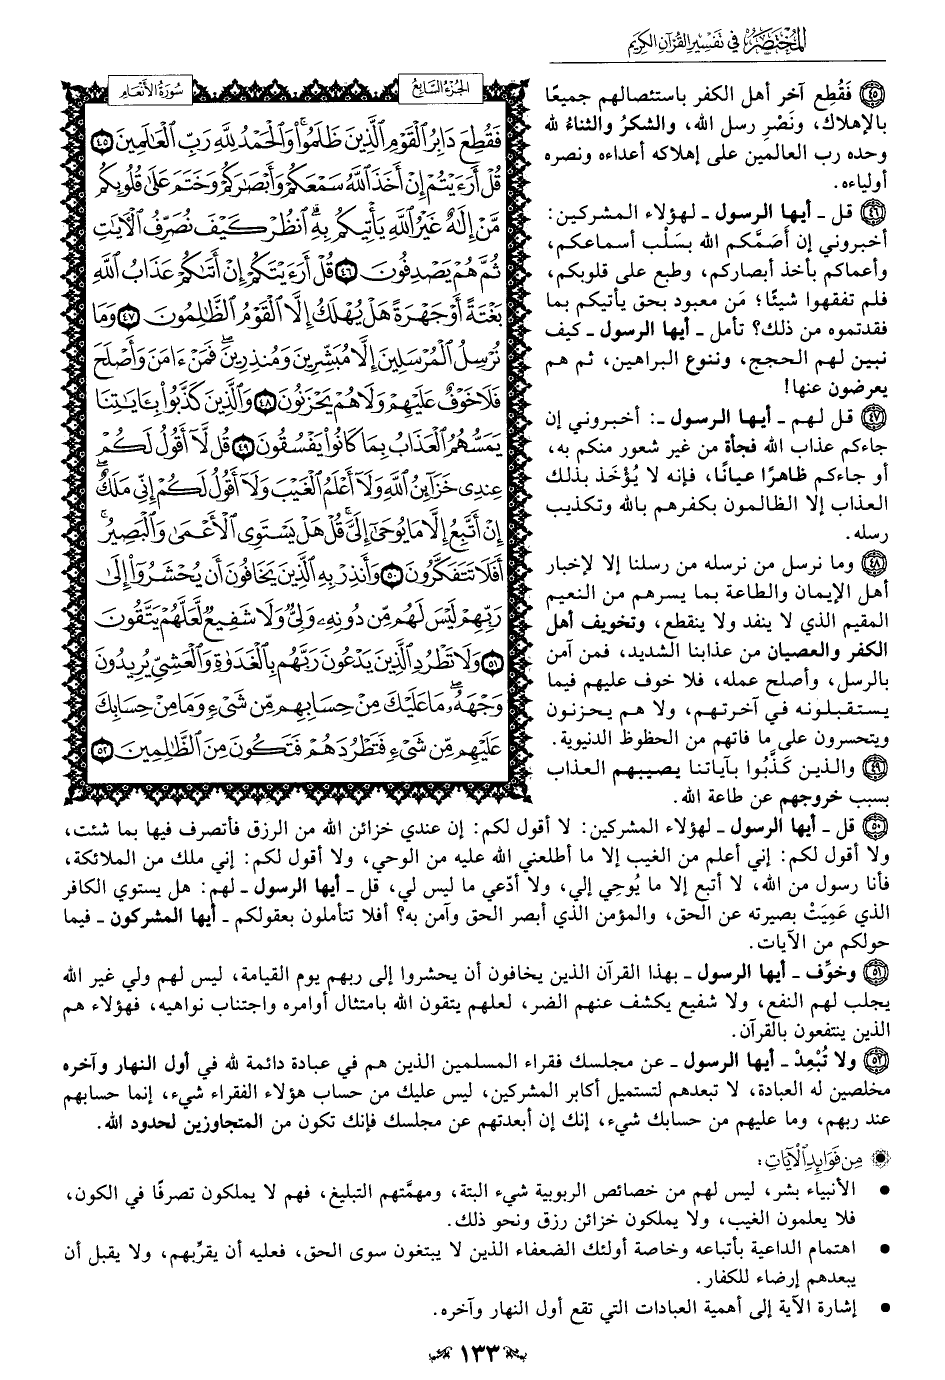 المختصر في تفسير القرآن الكريم
الجزء السابع
سورة الأنعام
فَقُطِعَ دَابِرُ ٱلْقَوْمِ ٱلَّذِينَ ظَلَمُوا۟ۚ وَٱلْحَمْدُ لِلَّهِ رَبِّ ٱلْعَـٰلَمِينَ ٤٥
قُلْ أَرَءَيْتُمْ إِنْ أَخَذَ ٱللَّهُ سَمْعَكُمْ وَأَبْصَـٰرَكُمْ وَخَتَمَ عَلَىٰ قُلُوبِكُم
مَّنْ إِلَـٰهٌ غَيْرُ ٱللَّهِ يَأْتِيكُم بِهِۗ ٱنظُرْ كَيْفَ نُصَرِّفُ ٱلْـَٔايَـٰتِ
ثُمَّ هُمْ يَصْدِفُونَ ٤٦ قُلْ أَرَءَيْتَكُمْ إِنْ أَتَىٰكُمْ عَذَابُ ٱللَّهِ
بَغْتَةً أَوْ جَهْرَةً هَلْ يُهْلَكُ إِلَّا ٱلْقَوْمُ ٱلظَّـٰلِمُونَ ٤٧ وَمَا
نُرْسِلُ ٱلْمُرْسَلِينَ إِلَّا مُبَشِّرِينَ وَمُنذِرِينَۖ فَمَنْ ءَامَنَ وَأَصْلَحَ
فَلَا خَوْفٌ عَلَيْهِمْ وَلَا هُمْ يَحْزَنُونَ ٤٨ وَٱلَّذِينَ كَذَّبُوا۟ بِـَٔايَـٰتِنَا
يَمَسُّهُمُ ٱلْعَذَابُ بِمَا كَانُوا۟ يَفْسُقُونَ ٤٩ قُل لَّآ أَقُولُ لَكُمْ
عِندِى خَزَآئِنُ ٱللَّهِ وَلَآ أَعْلَمُ ٱلْغَيْبَ وَلَآ أَقُولُ لَكُمْ إِنِّى مَلَكٌۖ
إِنْ أَتَّبِعُ إِلَّا مَا يُوحَىٰٓ إِلَىَّۚ قُلْ هَلْ يَسْتَوِى ٱلْأَعْمَىٰ وَٱلْبَصِيرُۚ
أَفَلَا تَتَفَكَّرُونَ ٥٠ وَأَنذِرْ بِهِ ٱلَّذِينَ يَخَافُونَ أَن يُحْشَرُوٓا۟ إِلَىٰ
رَبِّهِمْ لَيْسَ لَهُم مِّن دُونِهِۦ وَلِىٌّ وَلَا شَفِيعٌ لَّعَلَّهُمْ يَتَّقُونَ
٥١ وَلَا تَطْرُدِ ٱلَّذِينَ يَدْعُونَ رَبَّهُم بِٱلْغَدَوٰةِ وَٱلْعَشِىِّ يُرِيدُونَ
وَجْهَهُۥۖ مَا عَلَيْكَ مِنْ حِسَابِهِم مِّن شَىْءٍ وَمَا مِنْ حِسَابِكَ
عَلَيْهِم مِّن شَىْءٍ فَتَطْرُدَهُمْ فَتَكُونَ مِنَ ٱلظَّـٰلِمِينَ ٥٢
٤٥ فَقُطِع آخر أهل الكفر باستئصالهم جميعًا
بالإهلاك، ونَصْرِ رسل الله، والشكرُ والثناءُ لله
وحده رب العالمين على إهلاكه أعداءه ونصره
أولياءه.
٤٦ قل ـ أيها الرسول ـ لهؤلاء المشركين:
أخبروني إن أَصَمَّكم الله بسَلْب أسماعكم،
وأعماكم بأخذ أبصاركم، وطبع على قلوبكم،
فلم تفقهوا شيئًا؛ مَن معبود بحق يأتيكم بما
فقدتموه من ذلك؟ تأمل ـ أيها الرسول ـ كيف
نبين لهم الحجج، وننوع البراهين، ثم هم
يعرضون عنها!
٤٧ قل لهم ـ أيها الرسول ـ: أخبروني إن
جاءكم عذاب الله فجأة من غير شعور منكم به،
أو جاءكم ظاهرًا عيانًا، فإنه لا يُؤْخَذ بذلك
العذاب إلا الظالمون بكفرهم بالله وتكذيب
رسله.
٤٨ وما نرسل من نرسله من رسلنا إلا لإخبار
أهل الإيمان والطاعة بما يسرهم من النعيم
المقيم الذي لا ينفد ولا ينقطع، وتخويف أهل
الكفر والعصيان من عذابنا الشديد، فمن آمن
بالرسل، وأصلح عمله، فلا خوف عليهم فيما
يستقبلونه في آخرتهم، ولا هم يحزنون
ويتحسرون على ما فاتهم من الحظوظ الدنيوية.
٤٩ والذين كَذَّبُوا بآياتنا يصيبهم العذاب
بسبب خروجهم عن طاعة الله.
٥٠ قل ـ أيها الرسول ـ لهؤلاء المشركين: لا أقول لكم: إن عندي خزائن الله من الرزق فأتصرف فيها بما شئت،
ولا أقول لكم: إني أعلم من الغيب إلا ما أطلعني الله عليه من الوحي، ولا أقول لكم: إني ملك من الملائكة،
فأنا رسول من الله، لا أتبع إلا ما يُوحِي إلي، ولا أدّعي ما ليس لي، قل ـ أيها الرسول ـ لهم: هل يستوي الكافر
الذي عَمِيَتْ بصيرته عن الحق، والمؤمن الذي أبصر الحق وآمن به؟ أفلا تتأملون بعقولكم ـ أيها المشركون ـ فيما
حولكم من الآيات.
٥١ وخوِّف ـ أيها الرسول ـ بهذا القرآن الذين يخافون أن يحشروا إلى ربهم يوم القيامة، ليس لهم ولي غير الله
يجلب لهم النفع، ولا شفيع يكشف عنهم الضر، لعلهم يتقون الله بامتثال أوامره واجتناب نواهيه، فهؤلاء هم
الذين ينتفعون بالقرآن.
٥٢ ولا تُبْعِدْ ـ أيها الرسول ـ عن مجلسك فقراء المسلمين الذين هم في عبادة دائمة لله في أول النهار وآخره
مخلصين له العبادة، لا تبعدهم لتستميل أكابر المشركين، ليس عليك من حساب هؤلاء الفقراء شيء، إنما حسابهم
عند ربهم، وما عليهم من حسابك شيء، إنك إن أبعدتهم عن مجلسك فإنك تكون من المتجاوزين لحدود الله.
من فوائد الآيات:
• الأنبياء بشر، ليس لهم من خصائص الربوبية شيء البتة، ومهمَّتهم التبليغ، فهم لا يملكون تصرفًا في الكون،
فلا يعلمون الغيب، ولا يملكون خزائن رزق ونحو ذلك.
• اهتمام الداعية بأتباعه وخاصة أولئك الضعفاء الذين لا يبتغون سوى الحق، فعليه أن يقرِّبهم، ولا يقبل أن
يبعدهم إرضاء للكفار.
• إشارة الآية إلى أهمية العبادات التي تقع أول النهار وآخره.
١٣٣